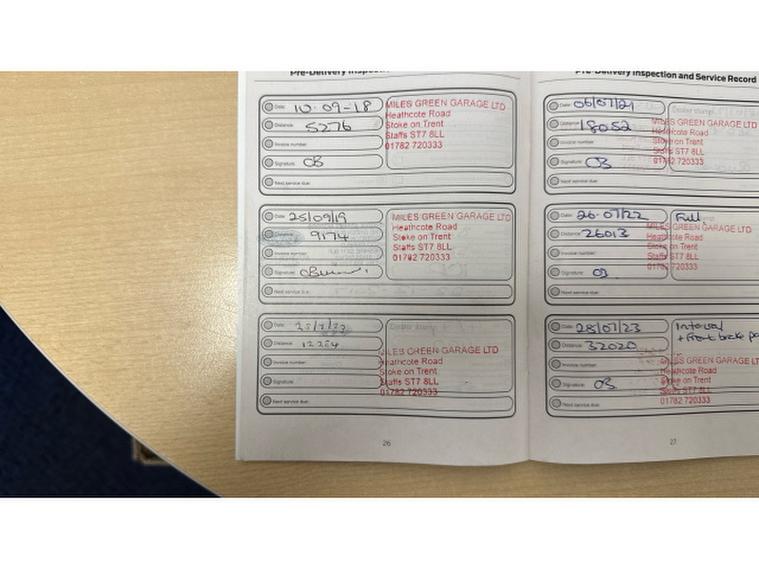 Pre-Delivery Inspecti
Date: 10-09-18
Distance: 5276
Invoice number:
Signature: OB
Next service due:
MILES GREEN GARAGE LTD
Heathcote Road
Stoke on Trent
Staffs ST7 8LL
01782 720333
Date: 25/09/19
Distance: 9174
Invoice number:
Signature:
Next service due:
MILES GREEN GARAGE LTD
Heathcote Road
Stoke on Trent
Staffs ST7 8LL
01782 720333
Date:
Distance: 12254
Invoice number:
Signature:
Next service due:
Dealer stamp
MILES GREEN GARAGE LTD
Heathcote Road
Stoke on Trent
Staffs ST7 8LL
01782 720333
26
Pre-Delivery Inspection and Service Record
Date: 06/07/21
Distance: 18052
Invoice number:
Signature: OB
Next service due:
Dealer stamp
MILES GREEN GARAGE LTD
Heathcote Road
Stoke on Trent
Staffs ST7 8LL
01782 720333
Date: 26-07/22
Distance: 26013
Invoice number:
Signature: OB
Next service due:
Full
MILES GREEN GARAGE LTD
Heathcote Road
Stoke on Trent
Staffs ST7 8LL
01782 720333
Date: 28/07/23
Distance: 32020
Invoice number:
Signature: OB
Next service due:
+ Front brake pa
MILES GREEN GARAGE LTD
Heathcote Road
Stoke on Trent
Staffs ST7 8LL
01782 720333
27